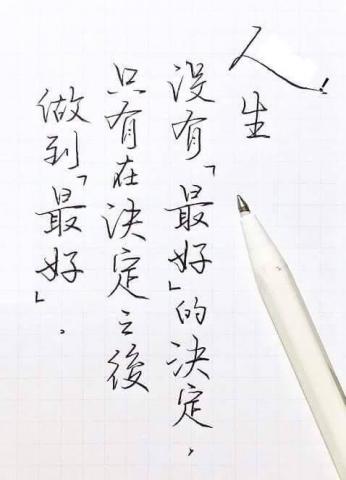 人生
沒有「最好」的決定，
只有在決定之後
做到「最好」。